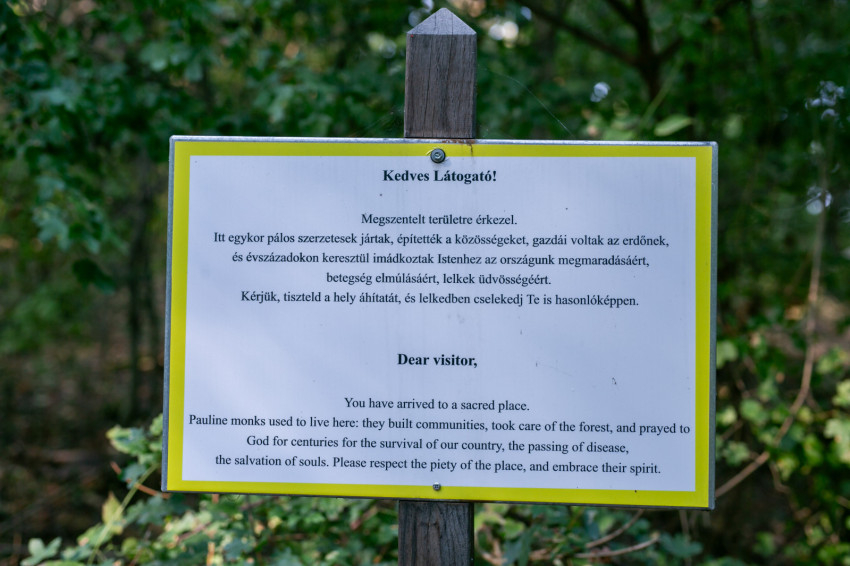 Kedves Látogató!
Megszentelt területre érkezel.
Itt egykor pálos szerzetesek jártak, építették a közösségeket, gazdái voltak az erdőnek,
és évszázadokon keresztül imádkoztak Istenhez az országunk megmaradásáért,
betegség elmúlásáért, lelkek üdvösségéért.
Kérjük, tiszteld a hely áhítatát, és lelkedben cselekedj Te is hasonlóképpen.
Dear visitor,
You have arrived to a sacred place.
Pauline monks used to live here: they built communities, took care of the forest, and prayed to
God for centuries for the survival of our country, the passing of disease,
the salvation of souls. Please respect the piety of the place, and embrace their spirit.